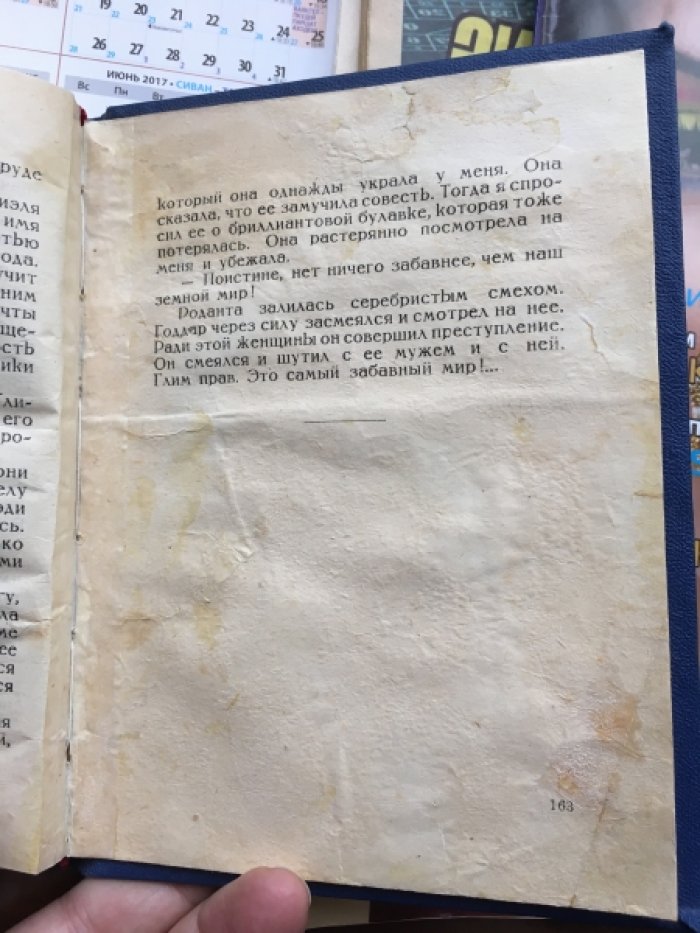 19 20 21 22 23 24 25
26 27 28 29 30 31
ИЮНЬ 2017 • СИВАН
Вс Пн Вт
руде
иэля
имя
тью
ода.
учит
ним
чты
още-
ость
ики
Гли-
его
ро-
они
елу
эди
сь.
ко
ми
гу,
ла
ме
ее
ся
ся
ия
й,
который она однажды украла у меня. Она
сказала, что ее замучила совесть. Тогда я спро-
сил ее о бриллиантовой булавке, которая тоже
потерялась. Она растерянно посмотрела на
меня и убежала.
— Поистине, нет ничего забавнее, чем наш
земной мир!
Роданта залилась серебристым смехом.
Годдар через силу засмеялся и смотрел на нее.
Ради этой женщины он совершил преступление.
Он смеялся и шутил с ее мужем и с ней.
Глим прав. Это самый забавный мир!...
163